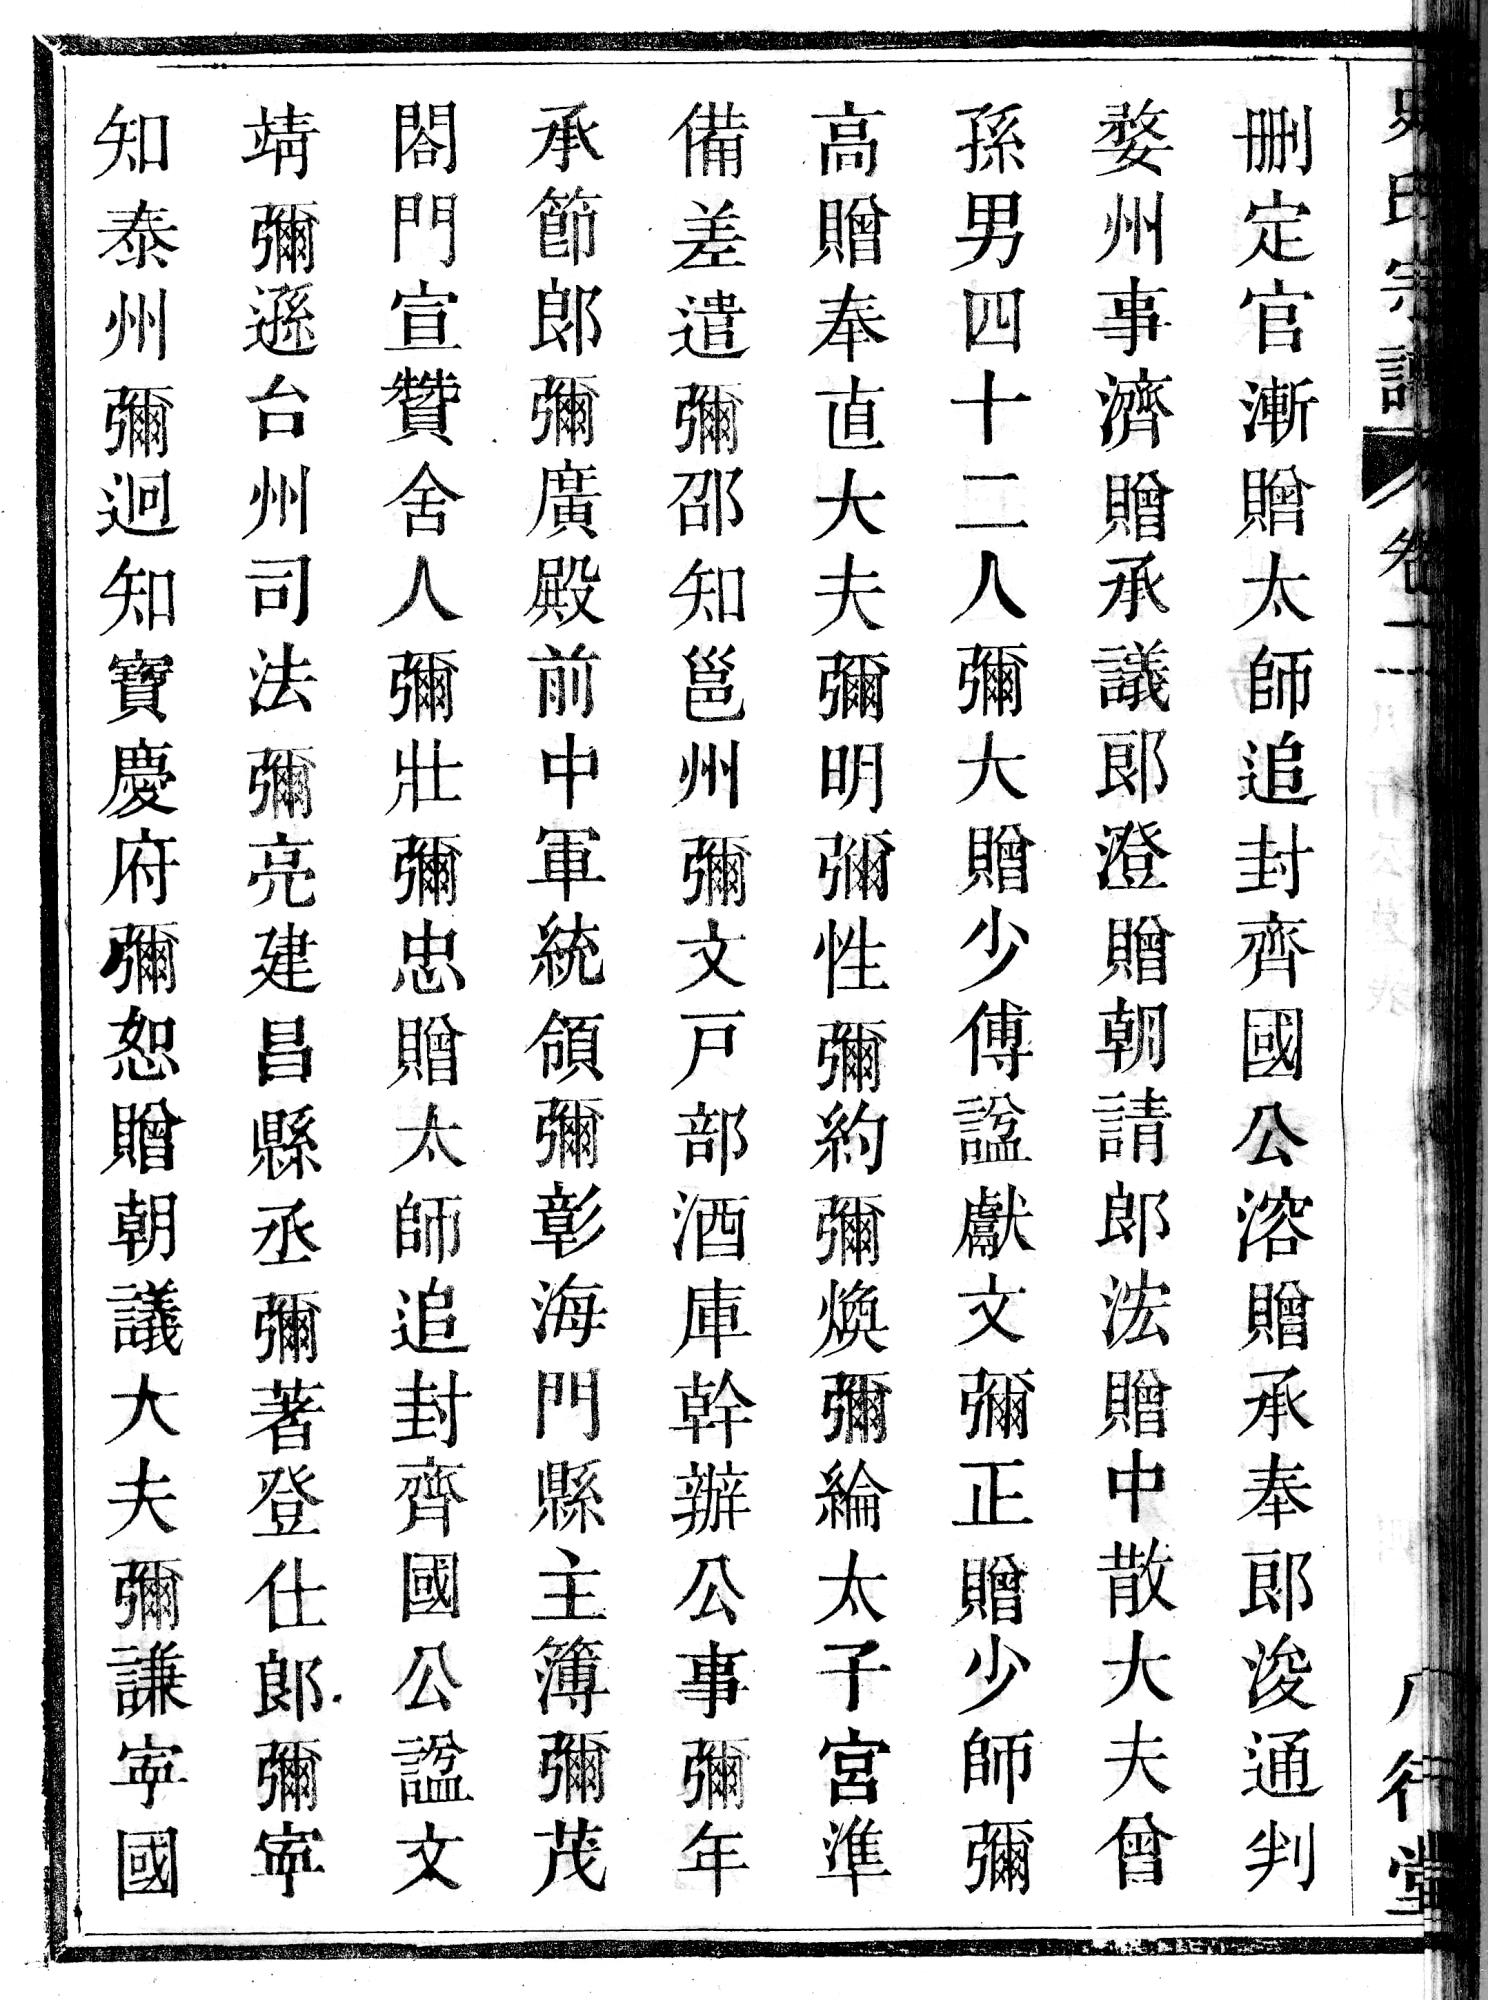 史氏宗譜 卷一 八行堂
刪定官漸贈太師追封齊國公溶贈承奉郎浚通判
婺州事濟贈承議郎澄贈朝請郎浤贈中散大夫曾
孫男四十二人彌大贈少傅諡獻文彌正贈少師彌
高贈奉直大夫彌明彌性彌約彌煥彌綸太子宮準
備差遣彌邵知邕州彌文戸部酒庫幹辦公事彌年
承節郎彌廣殿前中軍統領彌彰海門縣主簿彌茂
閤門宣贊舍人彌壯彌忠贈太師追封齊國公諡文
靖彌遜台州司法彌亮建昌縣丞彌著登仕郎彌寜
知泰州彌迥知寶慶府彌恕贈朝議大夫彌謙寜國